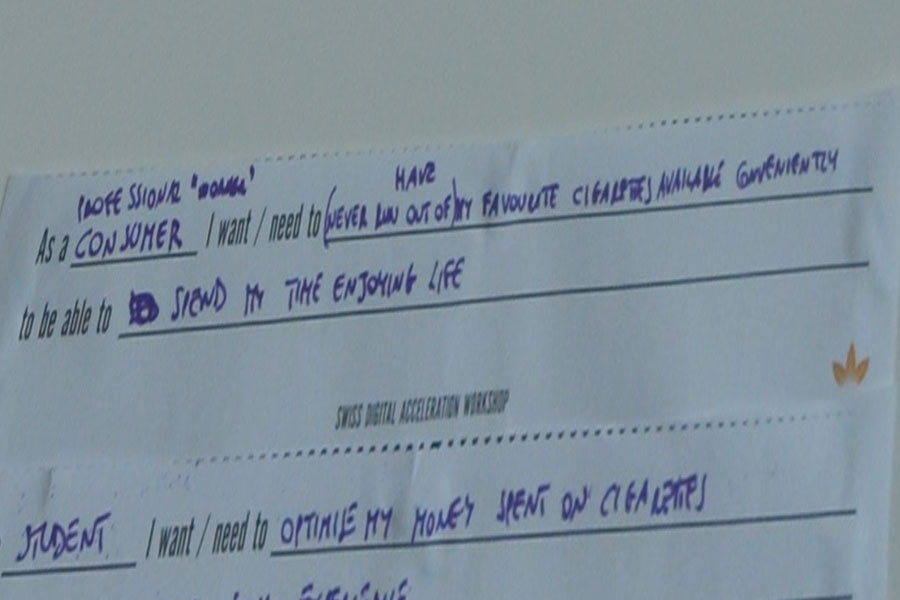 PROFESSIONAL HAVE
As a CONSUMER I want / need to (NEVER RUN OUT OF) MY FAVOURITE CIGARETTES AVAILABLE CONVENIENTLY
to be able to SPEND MY TIME ENJOYING LIFE
SWISS DIGITAL ACCELERATION WORKSHOP
STUDENT I want / need to OPTIMISE MY MONEY SPENT ON CIGARETTES